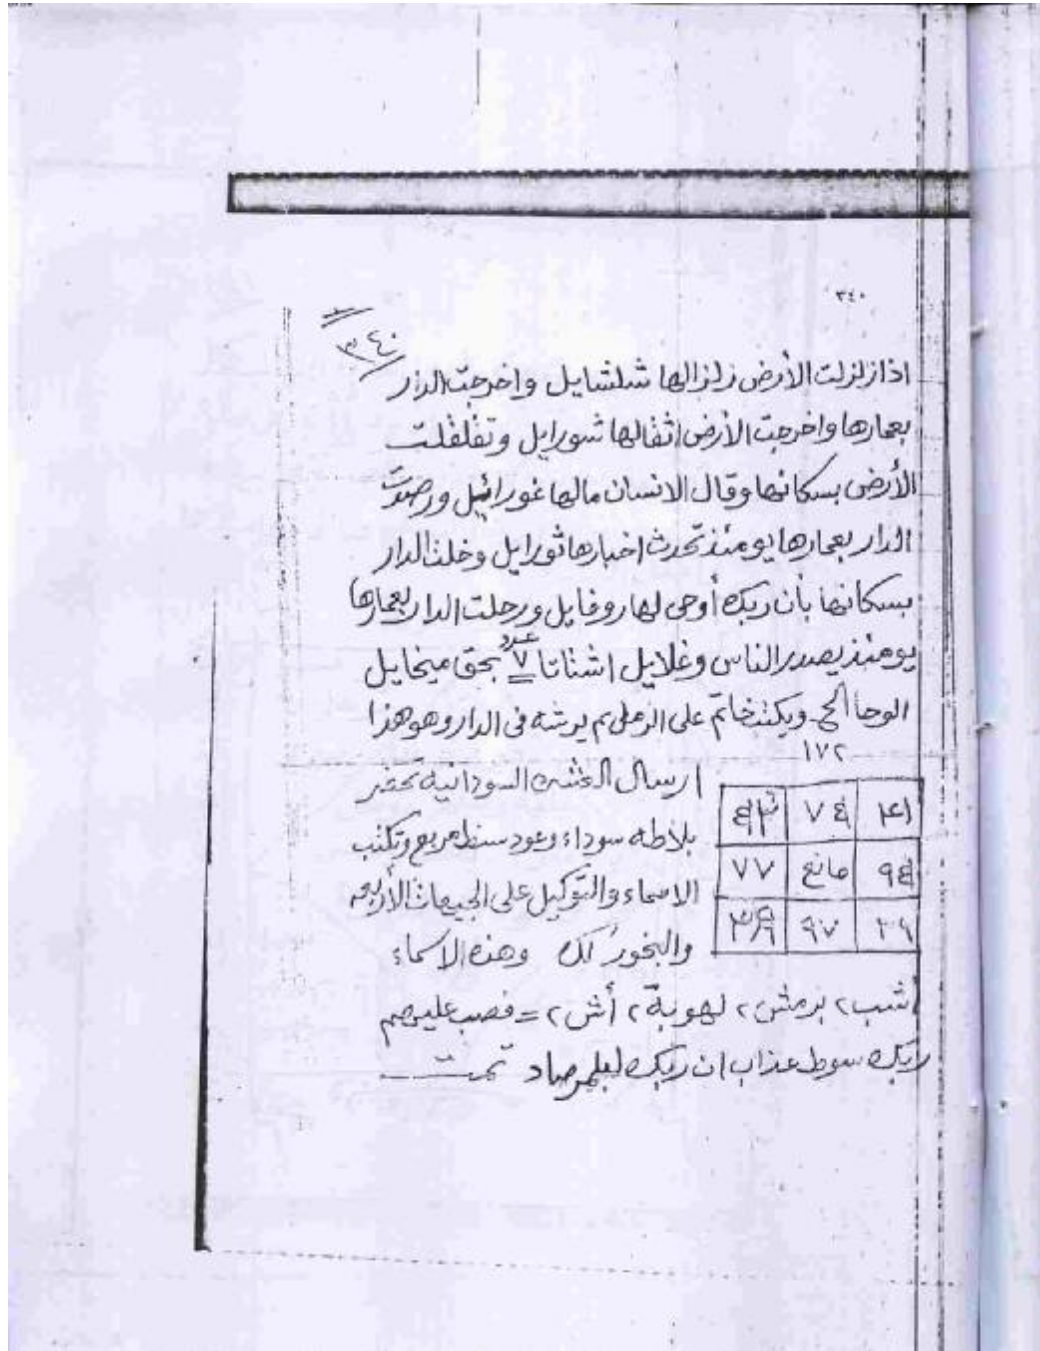 ٣٤٠
٣٤٠
اذا زلزلت الأرض زلزالها شلشايل واخرجت الدار
بعمارها واخرجت الأرض اثقالها شورايل وتقلقلت
الأرض بسكانها وقال الانسان مالها غورائيل ورصوت
الدار بعمارها يومئذ تحدث اخبارها ثورايل وخلت الدار
بسكانها بأن ربك أوحى لها روفايل ورحلت الدار بعمارها
يومئذ يصدر الناس وغلايل اشتاتا عدد ٧ بحق ميخايل
الوحا الخ ويكتب خاتم على الرمل ثم يرشه فى الدار وهو هذا
١٧٢
٧٤
٧٧ مانع ٩٤
٩٧
ارسال السودانية تحضر
بلاطه سوداء وعود سنط مربع وتكتب
الاسماء والتوكيل على الجهات الأربعه
والبخور لك وهذه الاسماء
أشب ٢ برمش ٢ لهوبة ٢ أش ٢ = فصب عليهم
ربك سوط عذاب ان ربك لبلمرصاد تمت